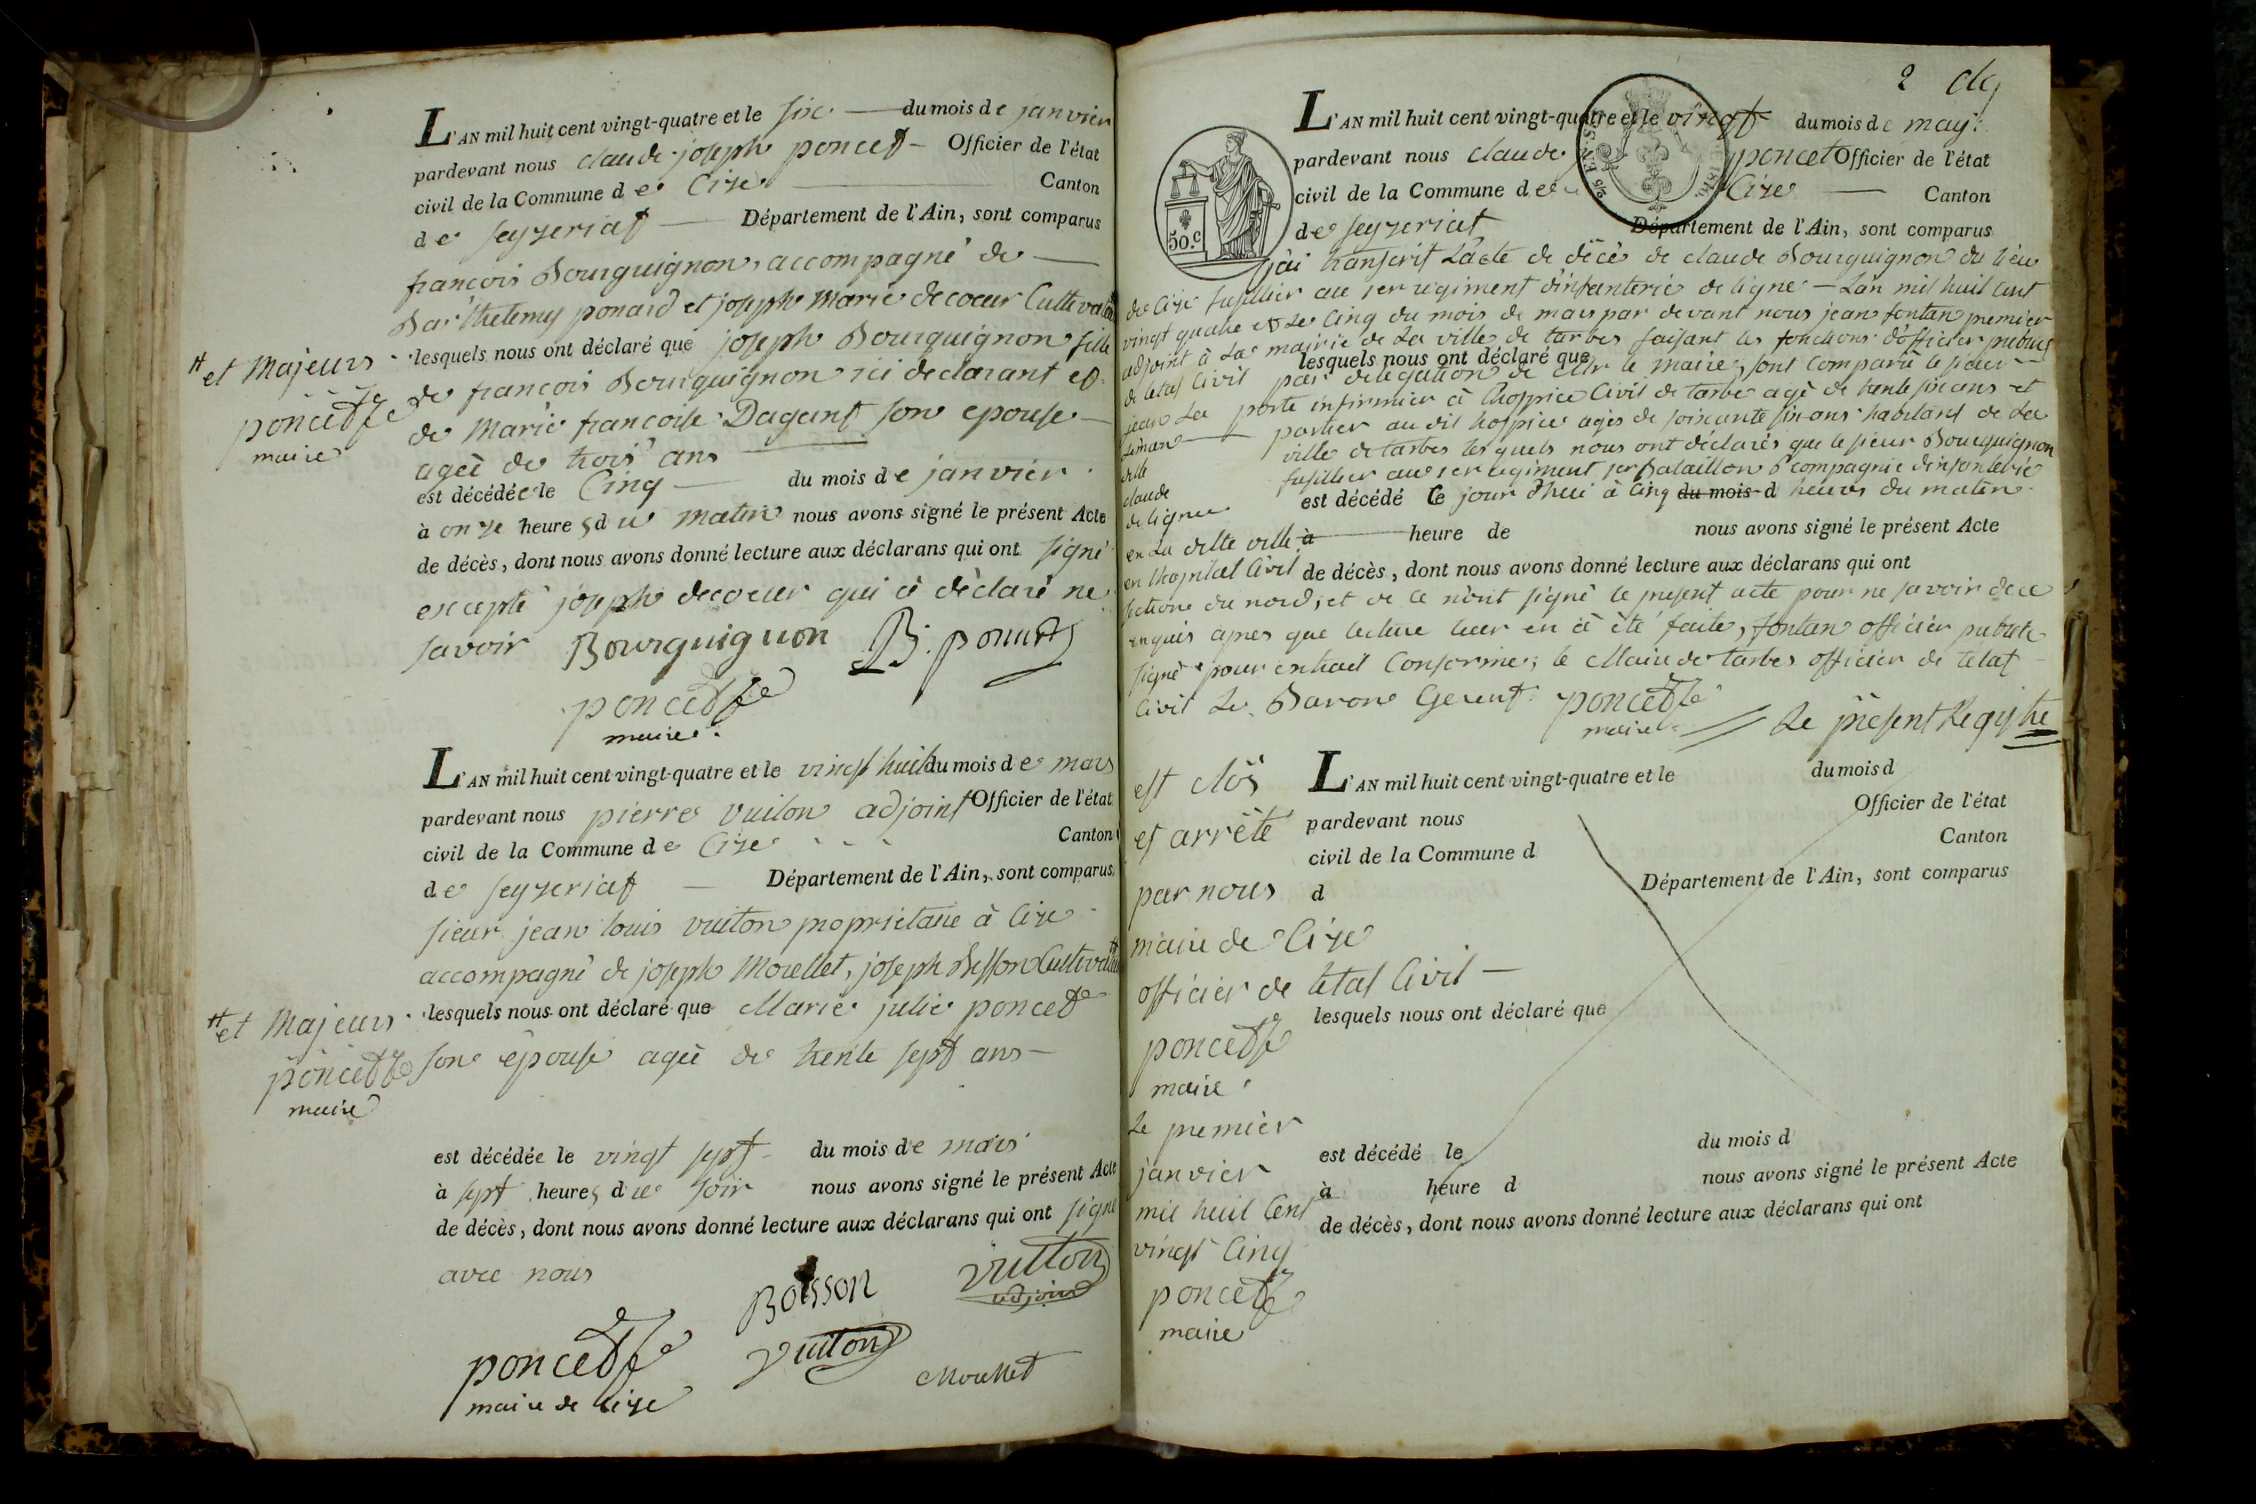 L'AN mil huit cent vingt-quatre et le six du mois de janvier
pardevant nous claude joseph poncet Officier de l'état
civil de la Commune de Cize Canton
de seyzeriat Département de l'Ain, sont comparus
francois Bourguignon, accompagné de
Barthelemy ponard et joseph Marie decoeur Cultivateurs
# et Majeurs
poncet
maire
lesquels nous ont déclaré que joseph Bourguignon fille
de francois Bourguignon ici declarant et
de Marie francoise Dagant son epouse
agée de trois ans
est décédée le Cinq du mois de janvier
à onze heures du matin nous avons signé le présent Acte
de décès, dont nous avons donné lecture aux déclarans qui ont signé
excepté joseph decoeur qui a déclaré ne
savoir Bourguignon B. ponard
poncet
maire
L'AN mil huit cent vingt-quatre et le vingt huit du mois de mars
pardevant nous pierre vuiton adjoint Officier de l'état
civil de la Commune de Cize Canton
de seyzeriat Département de l'Ain, sont comparus
sieur jean louis vuiton propriétaire à Cize
accompagné de joseph Morellet, joseph Besson Cultivateurs
# et Majeurs
poncet
maire
lesquels nous ont déclaré que Marie julie poncet
son épouse agée de trente sept ans
est décédée le vingt sept du mois de mars
à sept heures du soir nous avons signé le présent Acte
de décès, dont nous avons donné lecture aux déclarans qui ont signé
avec nous
Vuiton
adjoint
poncet
maire de Cize
Vuiton
Morellet
2
L'AN mil huit cent vingt-quatre et le vingt du mois de may
pardevant nous claude poncet Officier de l'état
civil de la Commune de Cize Canton
de seyzeriat Département de l'Ain, sont comparus
50.c
j'ai transcrit l'acte de décè de claude Bourguignon du lieu
de Cize fusillier au 1er régiment d'infanterie de ligne — L'an mil huit cent
vingt quatre et le Cinq du mois de mars par devant nous jean fontan premier
adjoint à la mairie de la ville de tarbes faisant les fonctions d'officier public
de letat Civil par délégation de Mr le maire, sont comparu le sieur
lesquels nous ont déclaré que
jean La porte infirmier à l'hospice Civil de tarbe agé de trente six ans et
portier au dit hospice agés de soixante six ans habitans de la
ville ville de tarbes lesquels nous ont déclarés que le sieur Bourguignon
claude fusillier au 1er régiment 1er Bataillon 6e compagnie d'infanterie
de ligne est décédé le jour d'hui à Cinq du mois d heures du matin
en la ditte ville à heure de nous avons signé le présent Acte
en l'hopital Civil de décès, dont nous avons donné lecture aux déclarans qui ont
section du nord, et de ce n'ont signé le present acte pour ne savoir de ce
enquis apres que lecture leur en à été faite, fontan officier public
signé pour extrait Conforme, le Maire de tarbes officier de letat
Civil Le Baron
poncet
maire
Le présent Registre
est clôs
et arrêté
par nous
maire de Cize
officier de letat Civil
poncet
maire
Le premier
janvier
mil huit Cent
vingt Cinq
poncet
maire
L'AN mil huit cent vingt-quatre et le du mois d
pardevant nous Officier de l'état
civil de la Commune d Canton
d Département de l'Ain, sont comparus
lesquels nous ont déclaré que
est décédé le du mois d
à heure d nous avons signé le présent Acte
de décès, dont nous avons donné lecture aux déclarans qui ont